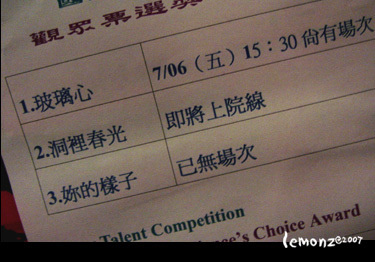 觀眾票選獎
1.玻璃心 7/06（五）15：30 尚有場次
2.洞裡春光 即將上院線
3.妳的樣子 已無場次
Talent Competition
Choice Award
lemonz@2007